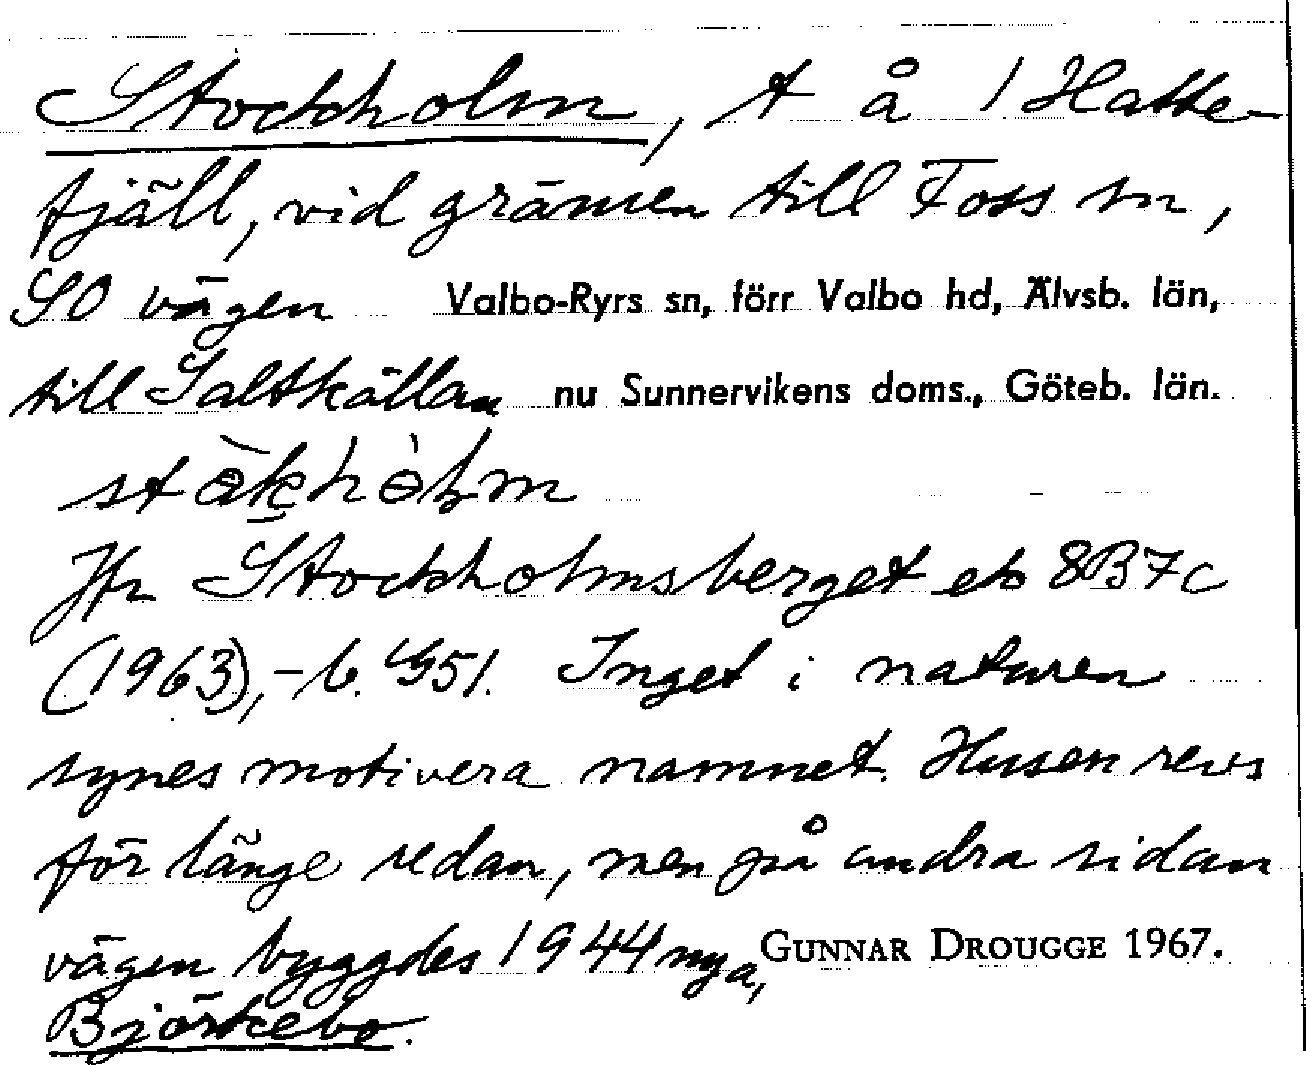 Stockholm, t å 1 Hatte-
fjäll, vid gränsen till Foss sn,
SO vägen Valbo-Ryrs sn, förr Valbo hd, Älvsb. län,
till Saltkällan nu Sunnervikens doms., Göteb. län.
Jfr Stockholmsberget eb 8B7c
(1963), - b. 451. Inget i naturen
synes motivera namnet. Husen revs
för länge sedan, men på andra sidan
vägen byggdes 1944 nya, GUNNAR DROUGGE 1967.
Björkebo.